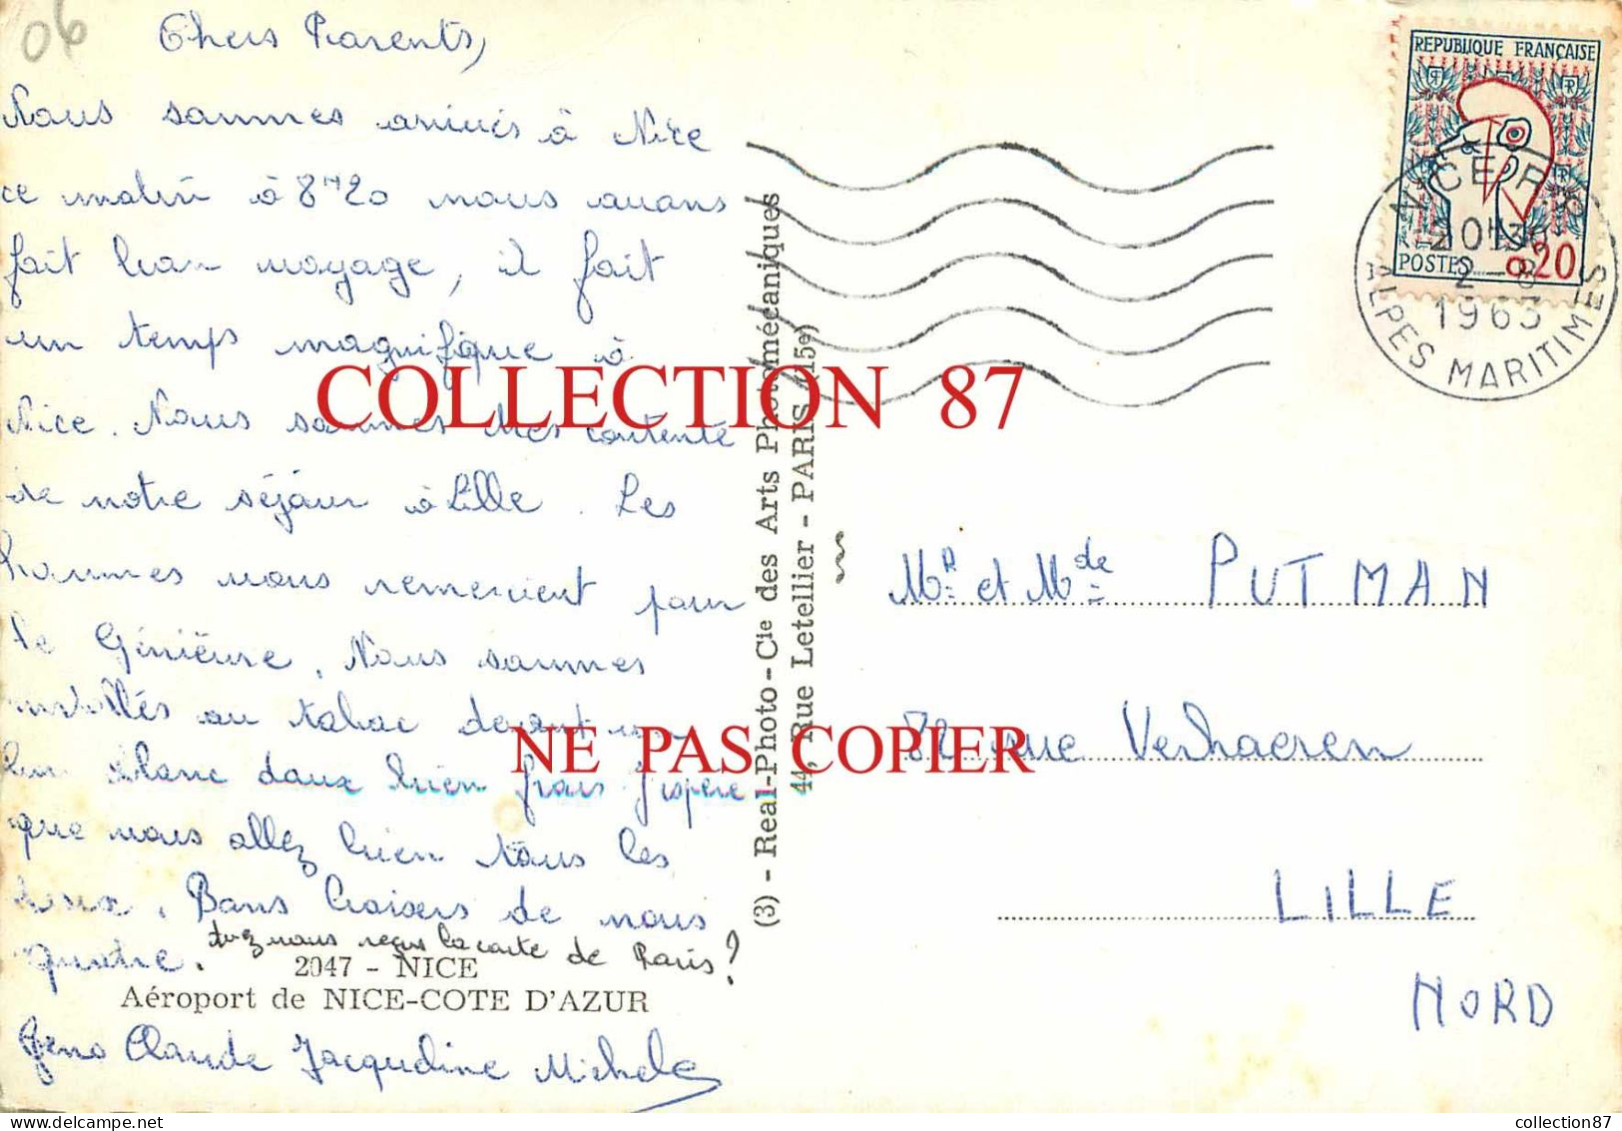 06
Chers Parents,
Nous sommes arrivés à Nice
ce matin à 8H20 nous avons
fait bon voyage, il fait
un temps magnifique à
Nice. Nous sommes très contente
de notre séjour à Lille. Les
hommes vous remercient pour
le Génièvre. Nous sommes
installés au tabac devant un
bien frais J'espère
que vous allez bien tous les
deux. Bons baisers de nous
quatre.
avez vous reçus la carte de Paris?
2047 - NICE
Aéroport de NICE-COTE D'AZUR
Claude Jacqueline Michele
(3) - Real-Photo - Cie des Arts Photomécaniques
44, Rue Letellier - PARIS (15e)
REPUBLIQUE FRANÇAISE
POSTES 0,20
NICE R.P.
20H30
2 - 8
1963
ALPES MARITIMES
Mr et Mde PUTMAN
82 rue Verhaeren
LILLE
NORD
COLLECTION 87
NE PAS COPIER
collection87